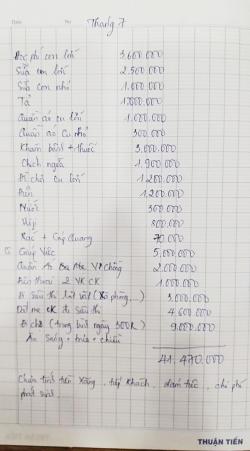 Tháng 7
Học phí con lớn 3.600.000
Sữa con lớn 2.500.000
Sữa con nhỏ 1.000.000
Tả 1.000.000
Quần áo cu lớn 1.000.000
Quần áo cu nhỏ 500.000
Khám bệnh + thuốc 3.000.000
Chích ngừa 1.900.000
Đi chơi cu lớn 1.200.000
Điện 1.200.000
Nước 300.000
300.000
Rác + Cáp Quang 70.000
Giúp Việc 5.000.000
Quần Áo Ba Mẹ, Vợ Chồng 2.000.000
Điện thoại 2 VK CK 1.000.000
Đi siêu thị lặt vặt (Xà phòng,...) 3.000.000
Đồ mẹ CK đi siêu thị 4.600.000
Đi chợ (trung bình ngày 300K) 9.000.000
Ăn sáng + trưa + chiều
41.470.000
Chưa tính tiền Xăng, tiếp khách, đám tiệc, chi phí
phát sinh.
THUẬN TIẾN